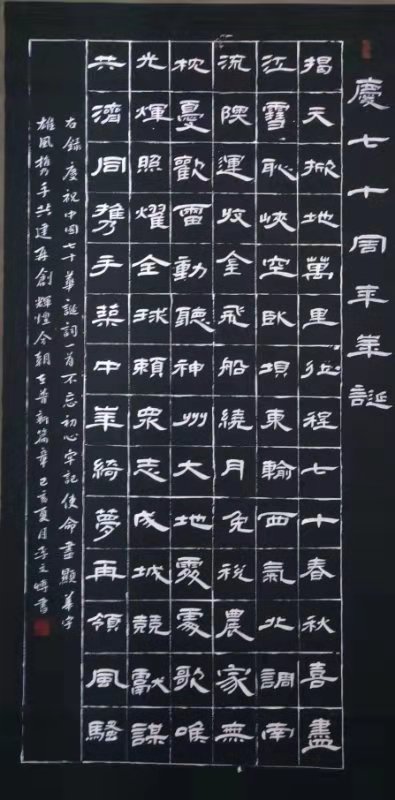 慶七十周年華誕
揭天掀地萬里征程七十春秋喜盡
江雪恥峽空臥壩東輸西氣北調南
流隩運收全飛船繞月免稅農家無
枕憂歡雷動聽神州大地處處歌喉
光輝照耀全球賴眾志成城競獻謀
共濟同攜手築中華綺夢再領風騷
右錄慶祝中国七十華誕詞一首不忘初心牢記使命盡顯華宇
雄風攜手共建再創輝煌今朝普新篇章己亥夏月李文書